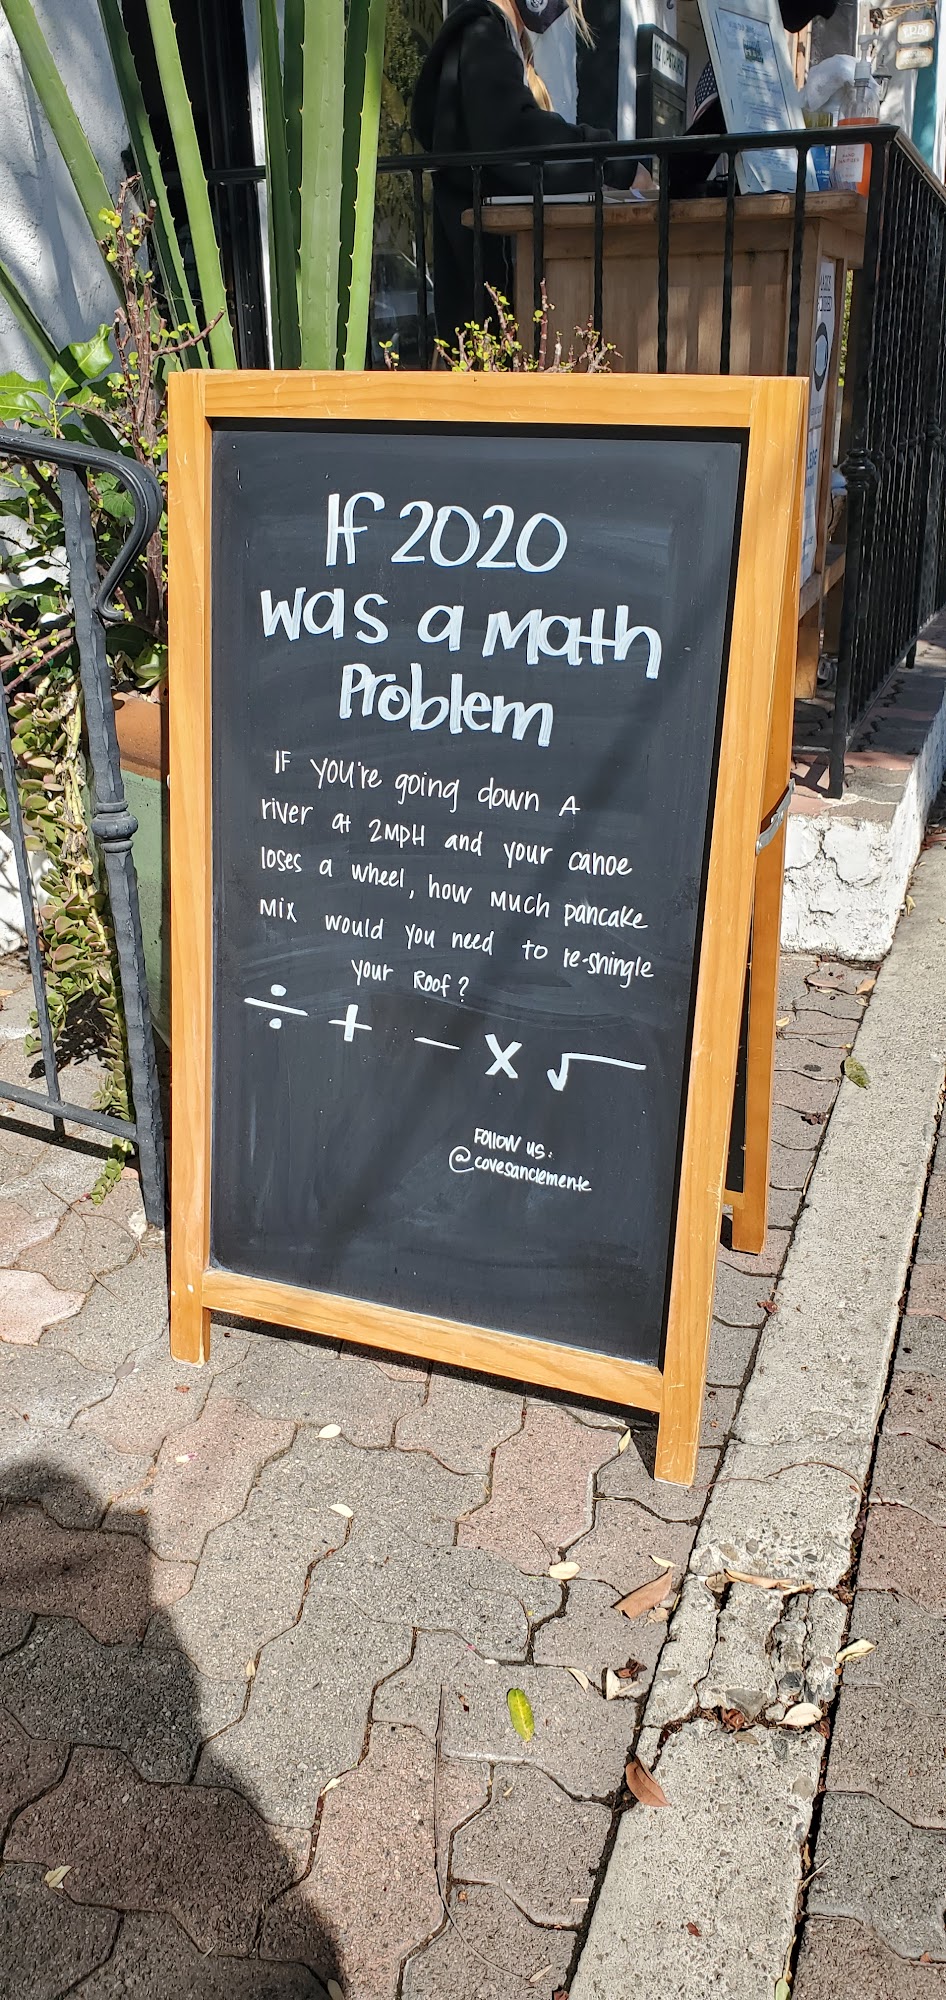 If 2020
was a Math
Problem
IF you're going down A
river at 2MPH and your canoe
loses a wheel, how Much pancake
Mix would you need to re-shingle
your Roof?
÷ + − × √
Follow us:
@covesanclemente